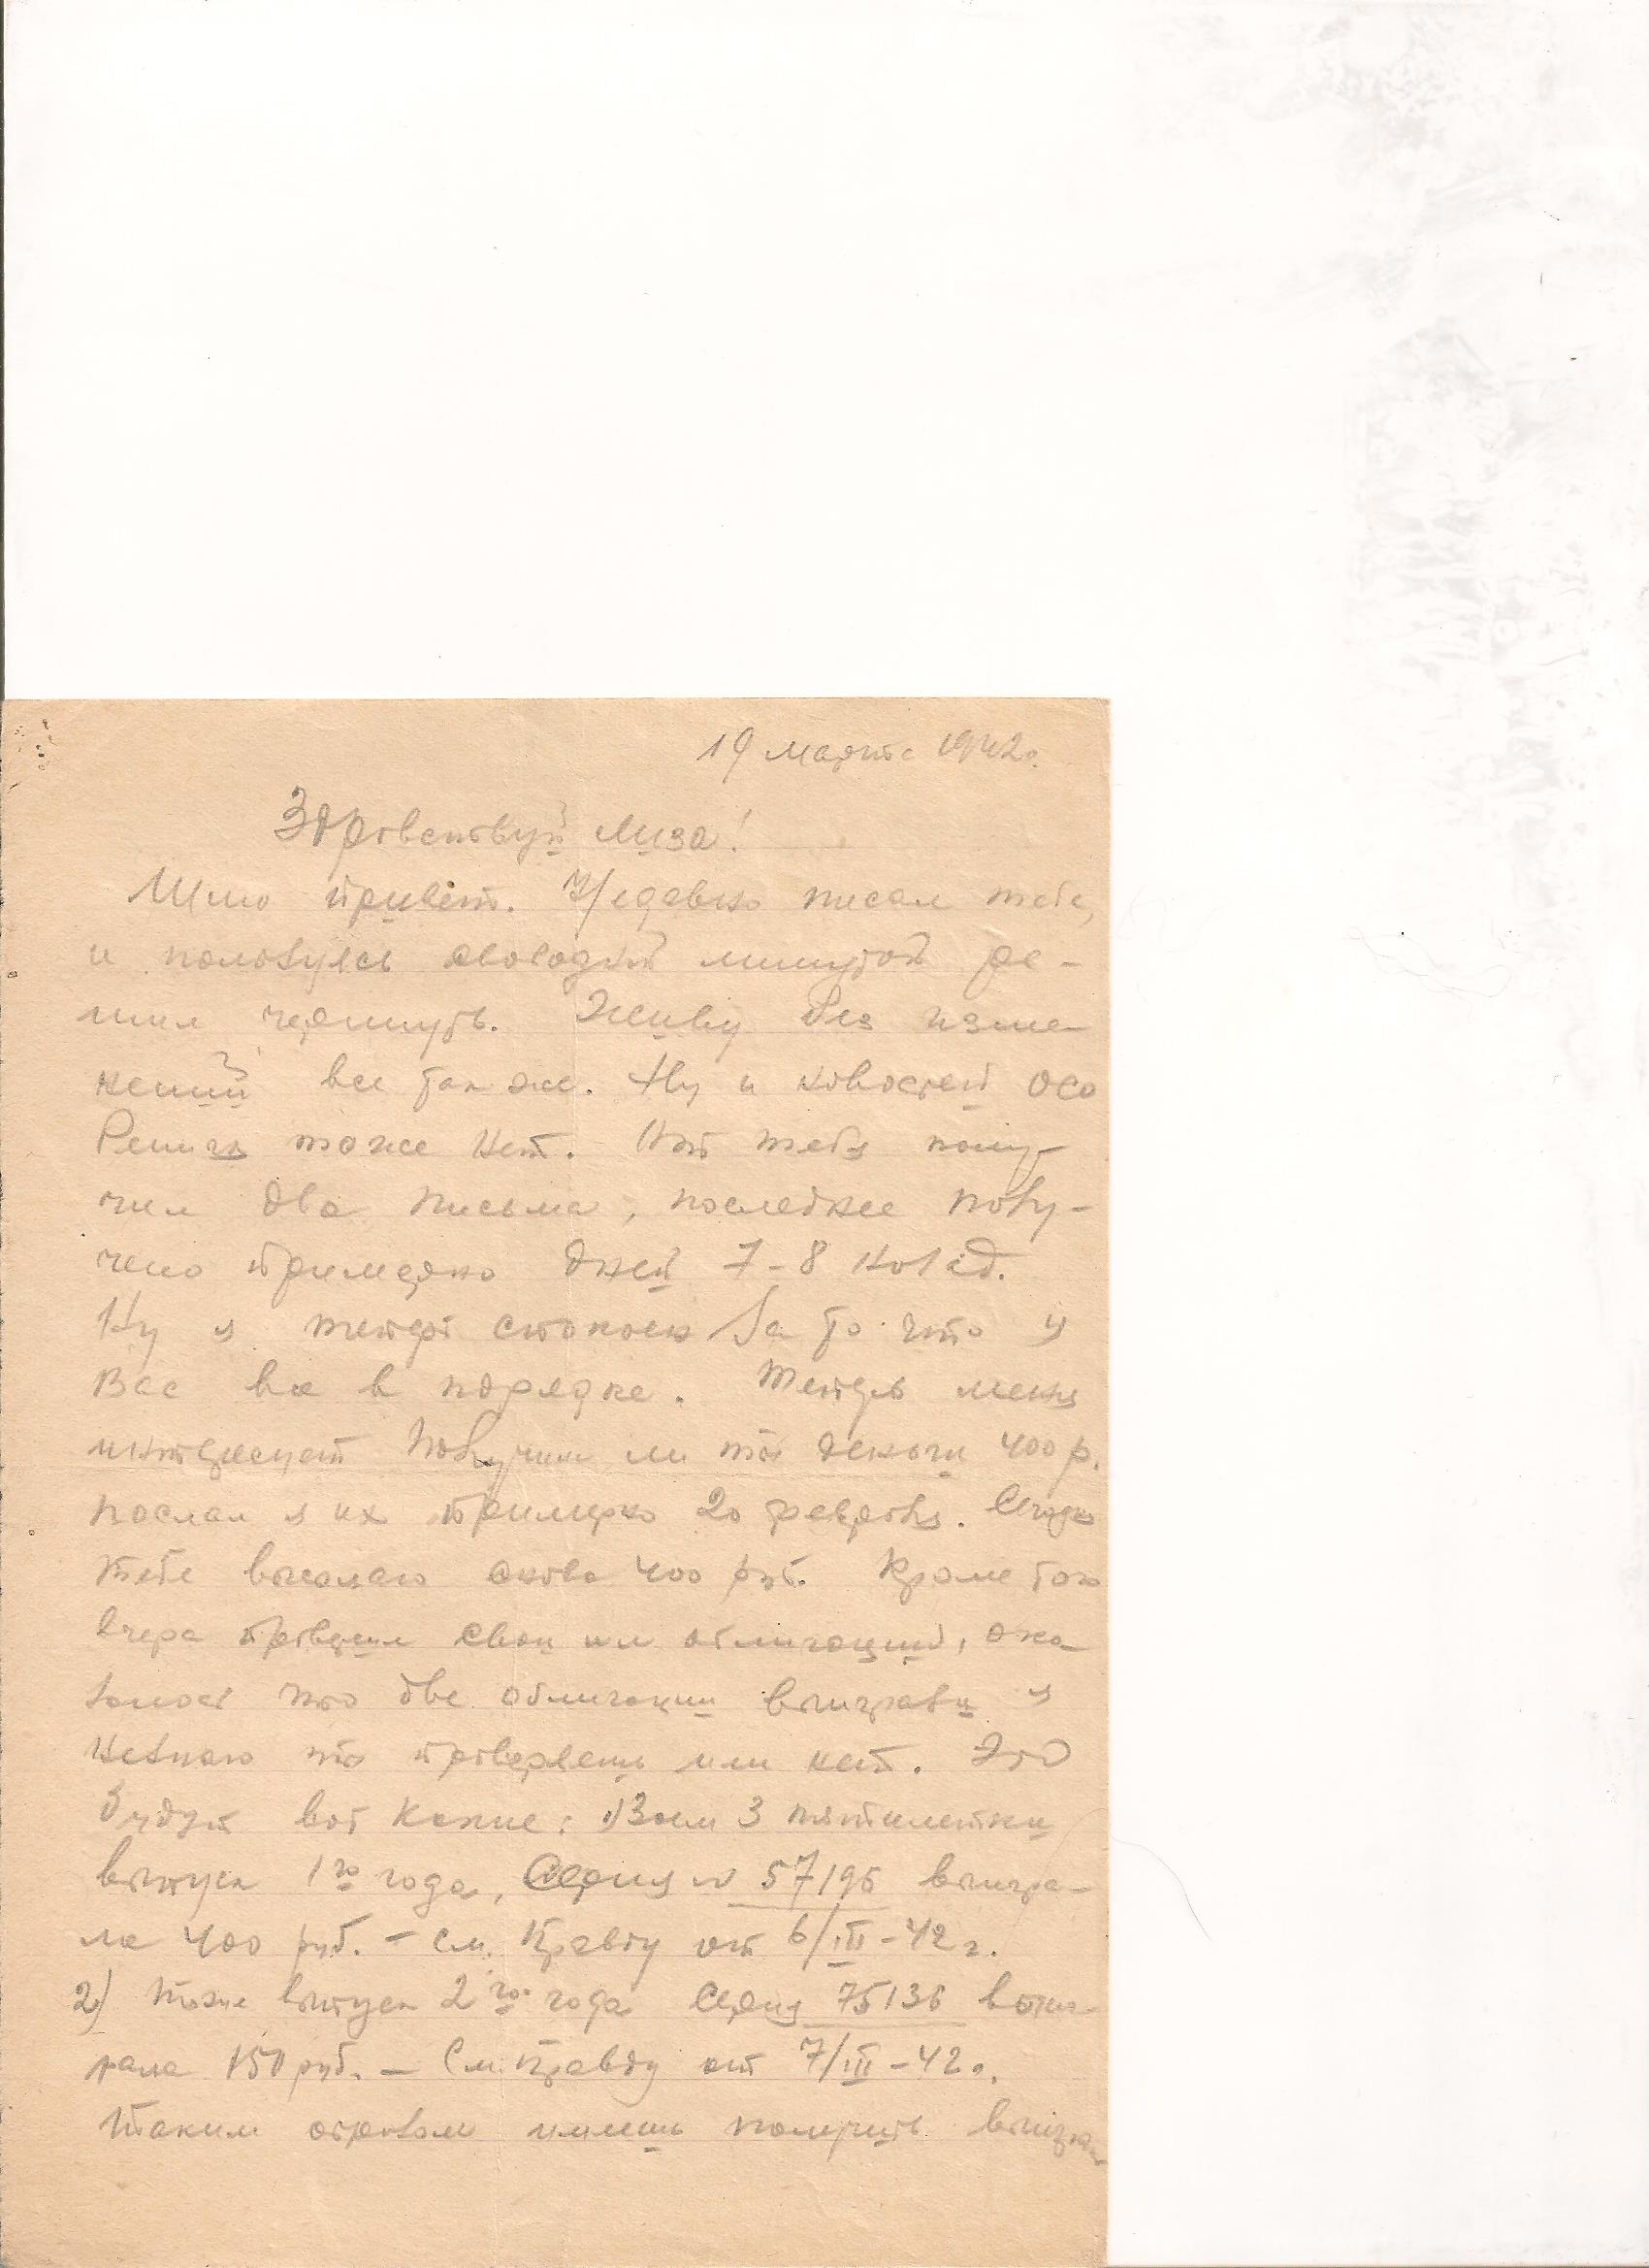 19 марта 1942г.
Здравствуй Лиза!
Шлю привет. Недавно писал тебе,
и пользуясь свободной минутой ре-
шил черкнуть. Живу без изме-
нений все так же. Ну и новостей осо
бенных тоже нет. От тебя полу-
чил два письма, последнее полу-
чено примерно дней 7-8 назад.
Ну я теперь спокоен за то что у
Вас все в порядке. Теперь меня
интересует получили ли ты деньги 400 р.
послал я их примерно 20 февраля.
тебе высылаю снова 400 руб. Кроме того
вчера проверил свои облигаций, ока
залось что две облигации выиграли я
незнаю ты проверяешь или нет. Это
будут вот какие: 1) Заем 3 пятилетки
выпуск 1го года, Серия № 57195 выигра-
ла 400 руб. – См. Правду от 6/III-42 г.
2) Тоже выпуск 2го года Серия 75136 выиг-
рала 150 руб. – См. Правду от 7/III-42г.
Таким образом имеешь получить